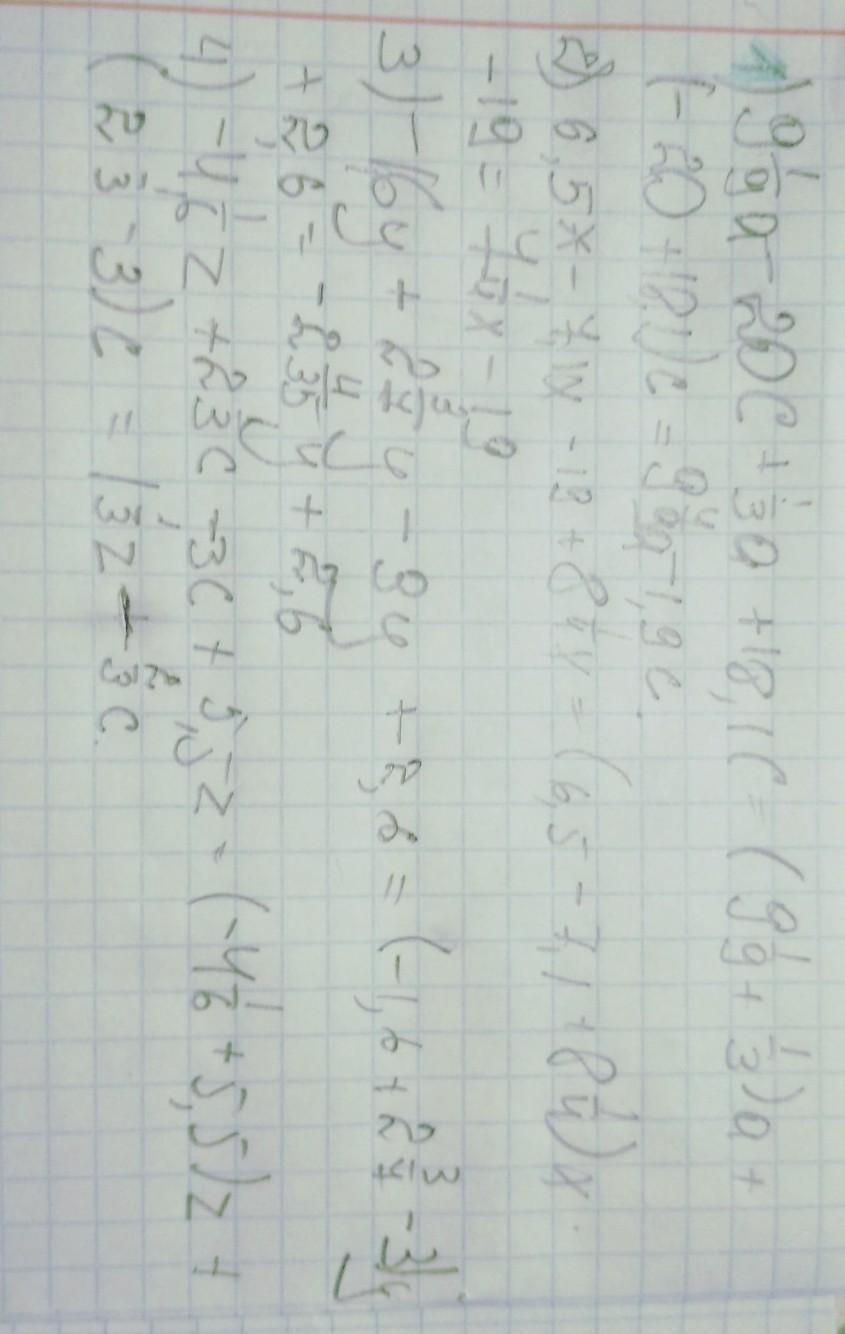 1) 9 1/9 a - 20c + 1/3 a + 18,1c = (9 1/9 + 1/3)a +
(-20 + 18,1)c = 9 4/9 a - 1,9c.
2) 6,5x - 7,1x - 19 + 8 1/4 x = (6,5 - 7,1 + 8 1/4)x
- 19 = x - 19
3) - 1,6y + 2 3/7 y - 3y + 2,6 = (-1,6 + 2 3/7 - 3)y
+ 2,6 = - 2 4/35 y + 2,6
4) -4 1/6 z + 2 1/3 c - 3c + 5,5z = (-4 1/6 + 5,5)z +
(2 1/3 - 3)c = 1 1/3 z - 2/3 c.